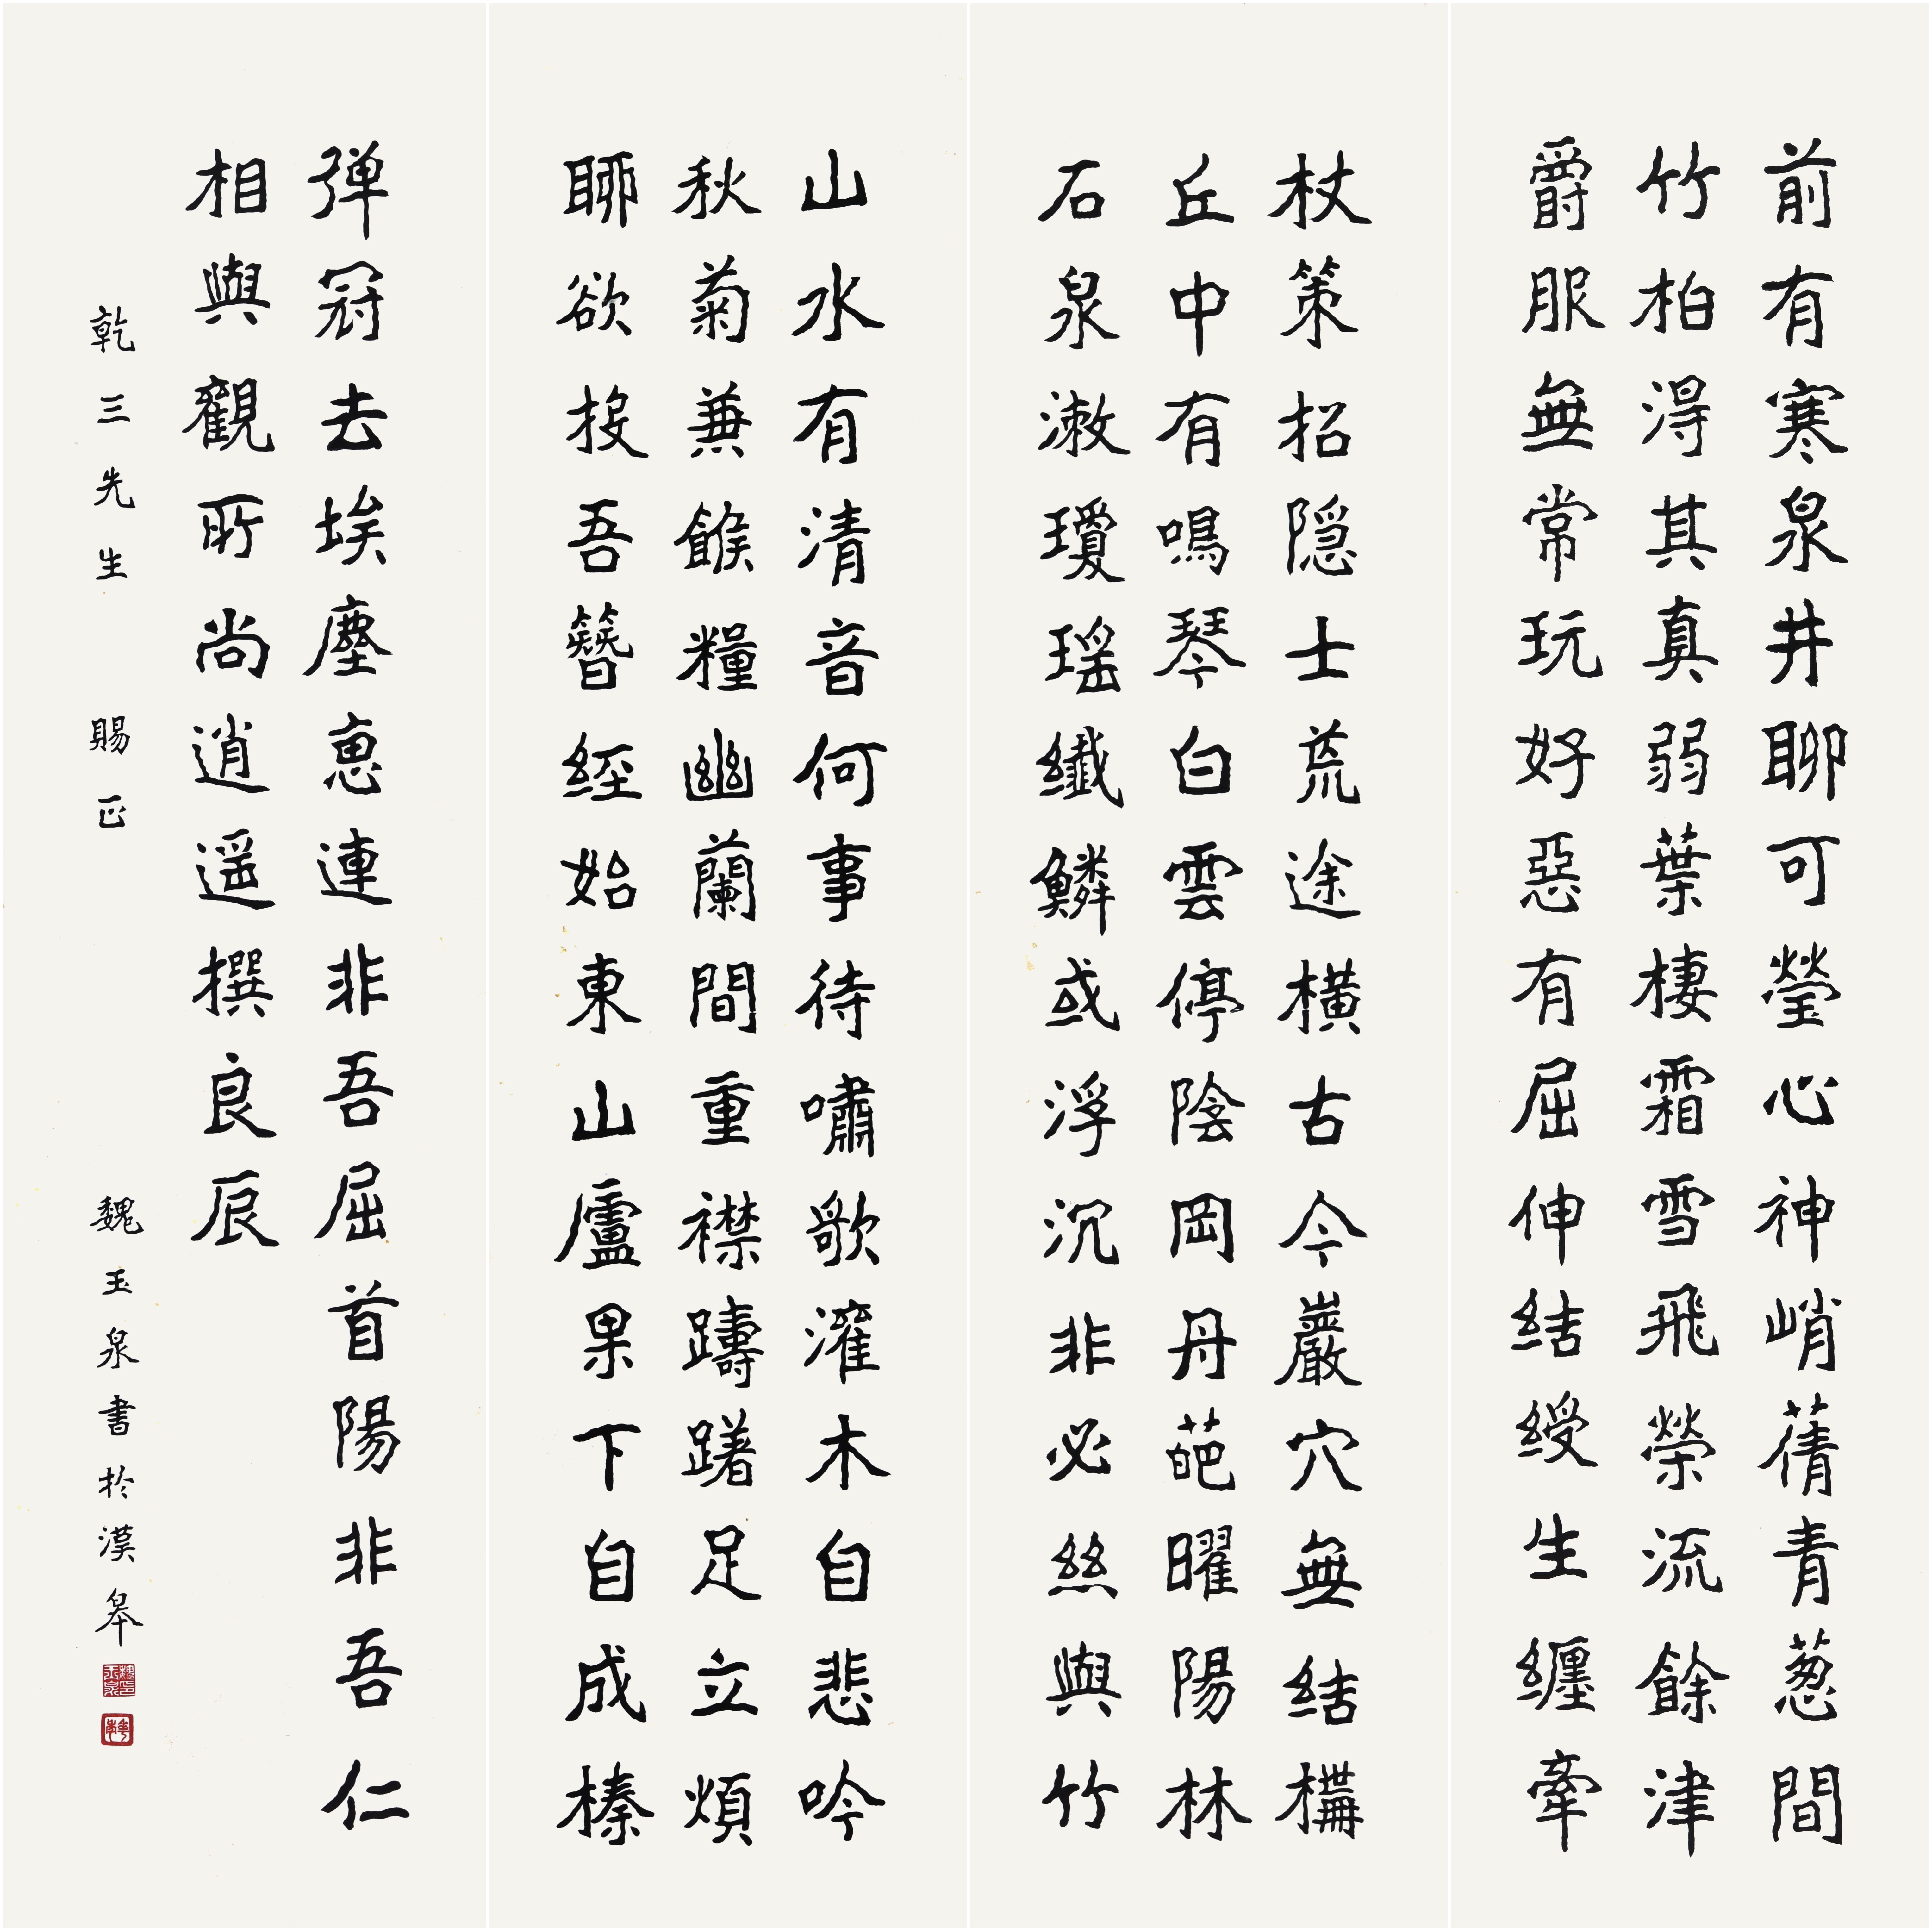 前有寒泉井聊可瑩心神峭蒨青葱間
竹柏淂其真弱葉棲霜雪飛榮流餘津
爵服無常玩好惡有屈伸結綬生纏牽
杖策招隐士荒途橫古今巖穴無結構
丘中有鳴琴白雲停陰岡丹葩曜陽林
石泉漱瓊瑶纖鱗或浮沉非必絲與竹
山水有清音何事待嘯歌灌木自悲吟
秋菊兼餱糧幽蘭間重襟躊躇足立煩
聊欲投吾簪経始東山廬果下自成榛
弹冠去埃塵惠連非吾屈首陽非吾仁
相與觀所尚逍遥撰良辰
乾三先生 賜正 魏玉泉書於漢皋